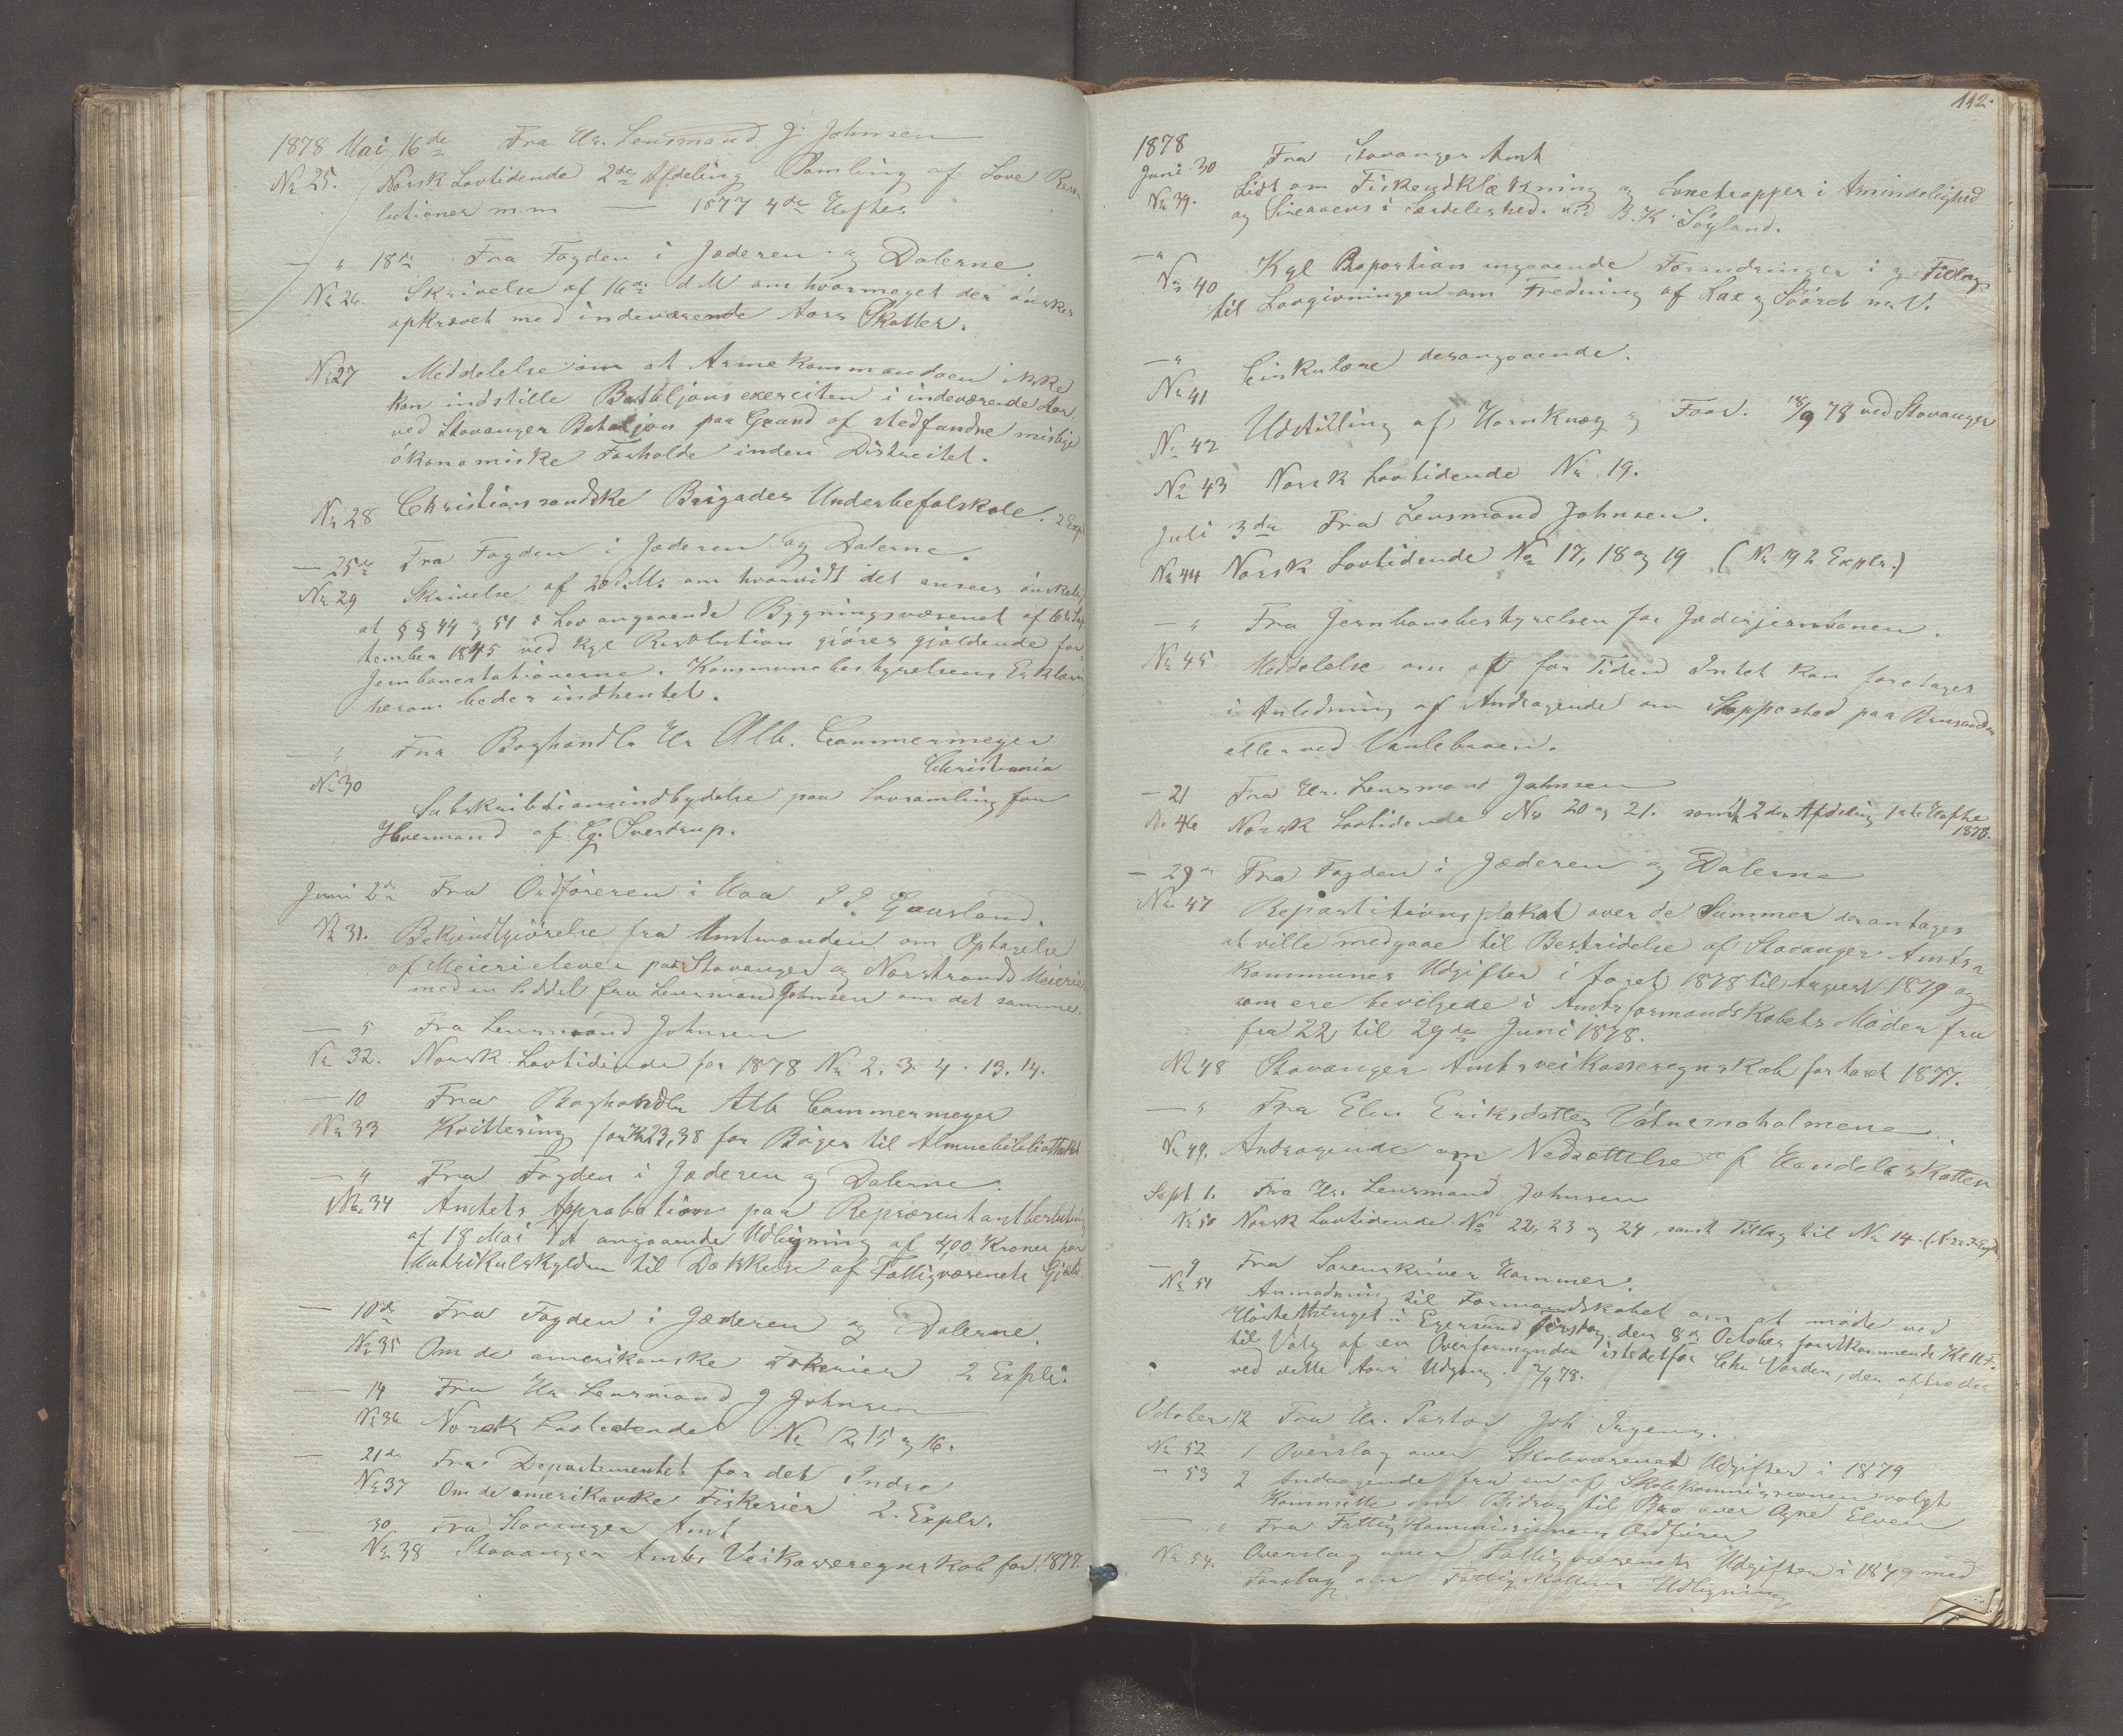 1878 Mai 16de Fra Hr. Lensmand J. Johnsen
No 25. Norsk Lovtidende 2den Afdeling Samling af Love Reso-
lutioner m m — 1877 4de Hefter
— " 18de Fra Fogden i Jæderen og Dalerne.
No 26 Skrivelse af 16de d M om hvormeget der önskes
opkrævet med indeværende Aars Skatter.
No 27 Meddelelse om at Armekommandoen ikke
kan indstille Bataljonsexerciten i indeværende Aar
ved Stavanger Bataljon paa Grund af stedfundne mislige
ökonomiske Forholde inden Distriktet.
No 28 Christianssandske Brigades Underbefalskole. 2 Expl
— 25de Fra Fogden i Jæderen og Dalerne.
No 29 Skrivelse af 20 d. M. om hvorvidt det ansees önskelig
at § § 44 og 51 i Lov angaaende Bygningsvæsenet af 6te Sep-
tember 1845 ved Kgl Resolution gjöres gjældende for
Jernbanestationerne. Kommunebestyrelsens Erklæring
herom bedes indhentet.
— " Fra Boghandler Hr Alb. Cammermeyer
Christiania
No 30
Subskribtionsindbydelse paa Lovsamling for
Hvermand af Sverdrup.
Juni 2de Fra Ordföreren i Haa Gausland.
No 31. Bekjendtgjörelse fra Amtmanden om Optagelse
af Meierielever paa Stavanger og Norstrands Meierier
med en Seddel fra Lensmand Johnsen om det samme.
— 5 Fra Lensmand Johnsen
No 32. Norsk Lovtidende for 1878 No 2. 3. 4. 13. 14.
— 10 Fra Boghandler Alb Cammermeyer
No 33 Kvittering for Kr 23,38 for Böger til Almuebibliotheket
— " Fra Fogden i Jæderen og Dalerne.
No. 34 Amtets Approbation paa Repræsentantbeslutning
af 18 Mai angaaende Udligning af 4,00 Kroner paa
Matrikulskylden til Dækkelse af Fattigvæsenets Gjæld.
— 10de Fra Fogden i Jæderen og Dalerne.
No 35 Om de amerikanske Fiskerier 2 Expl.
— 14 Fra Hr Lensmand J Johnsen
No 36 Norsk Lovtidende No 12, 15 og 16.
— 21de Fra Departementet for det Indre
No 37 Om de amerikanske Fiskerier 2. Explr.
30 Fra Stavanger Amt
No 38 Stavanger Amts Veikasseregnskab for 1877.
112.
1878
Juni 30 Fra Stavanger Amt
No 39. Lidt om Fiskeudklækning og Laxetrapper i Almindelighed
og Sireaaens i Særdeleshed. ved B. K. Söyland.
— "
No 40 Kgl Proposition angaaende Forandringer i og Tillæg
til Lovgivningen om Fredning af Lax og Sööret m. V.
— "
No 41 Cirkulære desangaaende.
No 42 Udstilling af Hornkvæg og Faar. 18/9 78 ved Stavanger
No 43 Norsk Lovtidende No 19.
Juli 3de Fra Lensmand Johnsen.
No 44 Norsk Lovtidende No 17, 18 og 19 (No 19 2 Explr.)
— " Fra Jernbanebestyrelsen for Jæderjernbanen.
No 45 Meddelelse om at for Tiden Intet kan foretages
i Anledning af Andragende om Stoppested paa Brusanden
eller ved Varlebroen.
— 21 Fra Hr. Lensmand Johnsen
No 46 Norsk Lovtidende No 20 og 21. samt 2den Afdeling 1ste Hefte
1878.
— 29de Fra Fogden i Jæderen og Dalerne
No 47 Repartitionsplakat over de Summer der antages
at ville medgaae til Bestridelse af Stavanger Amts
Kommunes Udgifter i Aaret 1878 til August 1879 og
som ere bevilgede i Amtsformandskabets Möder fra
fra 22 til 29de Juni 1878.
No 48 Stavanger Amtsveikasseregnskab for Aaret 1877.
— " Fra Elen Eriksdatter Vatnemoholmene.
No 49. Andragende om Nedsættelse af Handelsskatten
Sept 1. Fra Hr. Lensmand Johnsen
No 50 Norsk Lovtidende No 22, 23 og 24, samt Tillæg til No 14.
— 9 Fra Sorenskriver Hammer.
No 51 Anmodning til Formandskabet om at möde ved
Hösttethinget i Egersund den 8de October förstkommende Kl
til Valg af en Overformynder istedetfor Chr Varden, der aftræder
ved dette Aars Udgang. 2/9 78.
October 12 Fra Hr. Pastor Joh
No 52 1 Overslag over Skolevæsenet Udgifter i 1879
— 53 2 Andragende fra en af Skolekommissionen valgt
Kommitte om Bidrag til Bro over Ogne Elven
— " Fra Fattigkommissionens Ordförer
No 54. Overslag over Fattigvæsenets Udgifter i 1879 med
Forslag om Fattigskattens Udligning